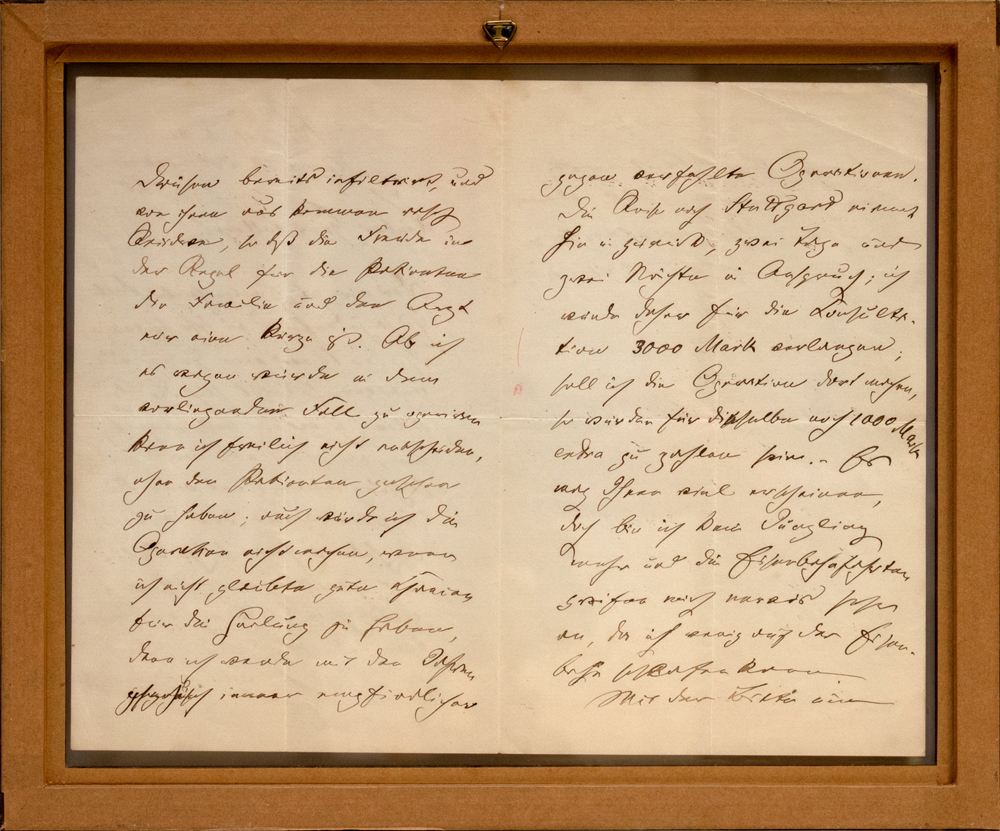 Drüsen bereits infiltrirt, und
von ihnen aus kommen rasch
Recidive, so daß die Freude in
der Regel für die Patienten
die Familie und den Arzt
nur eine kurze ist. Ob ich
es wagen würde in dem
vorliegenden Fall zu operiren
kann ich freilich nicht entscheiden,
ohne den Patienten gesehen
zu haben; auch würde ich die
Operation nicht machen, wenn
ich nicht glaubte gute Chancen
für die Heilung zu haben,
denn ich werde mit den Jahren
immer empfindlicher
gegen verfehlte Operationen.
Die Reise nach Stuttgart nimmt
hin u. zurück, zwei Tage und
zwei Nächte in Anspruch; ich
würde daher für die Consulta-
tion 3000 Mark verlangen;
soll ich die Operation dort machen,
so würden für dieselbe noch 1000 Mark
extra zu zahlen sein. – Es
mag Ihnen viel erscheinen,
doch bin ich kein Jüngling
mehr und die Eisenbahnfahrten
greifen mich nervös sehr
an, da ich wenig auf der Eisen-
bahn schlafen kann
Mit der Bitte um